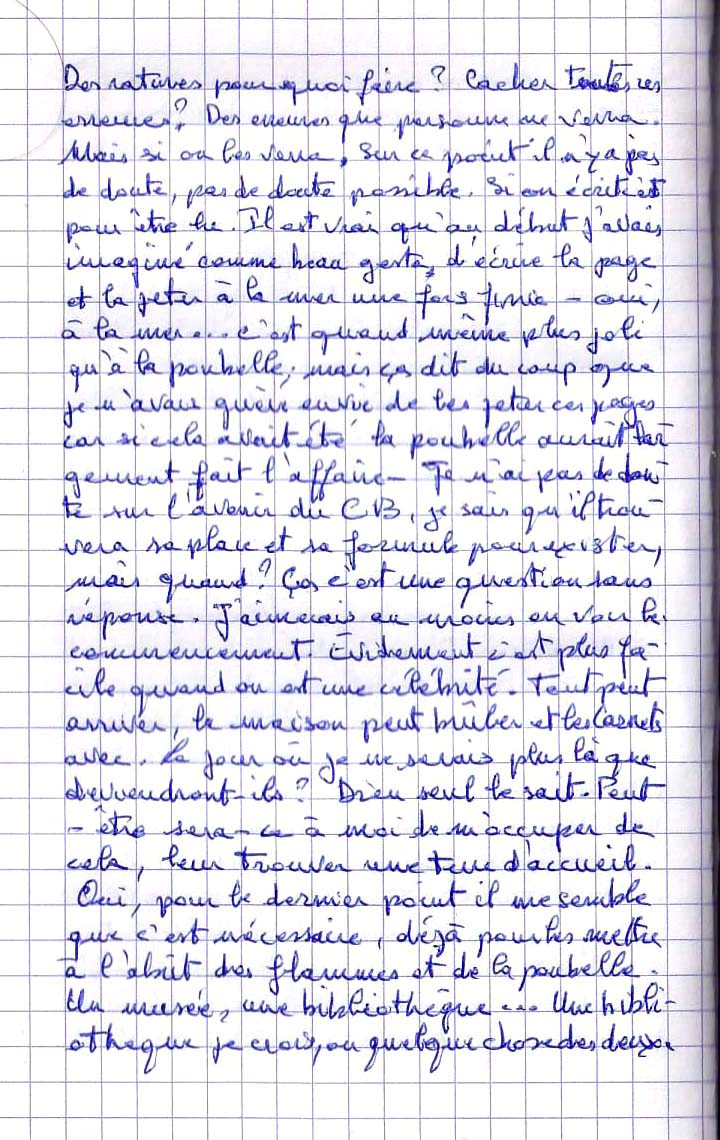 Des ratures pour quoi faire ? Cacher toutes ces
erreurs ? Des erreurs que personne ne verra.
Mais si on les verra, sur ce point il n'y a pas
de doute, pas de doute possible. Si on écrit c'est
pour être lu. Il est vrai qu'au début j'avais
imaginé comme beau geste, d'écrire la page
et la jeter à la mer une fois finie - oui,
à la mer... c'est quand même plus joli
qu'à la poubelle, mais ça dit du coup que
je n'avais guère envie de les jeter ces pages
car si cela avait été la poubelle aurait lar
gement fait l'affaire - Je n'ai pas de dou
te sur l'avenir du CB, je sais qu'il trou-
vera sa place et sa formule pour exister,
mais quand ? Ça c'est une question sans
réponse. J'aimerais au moins en voir le
commencement. Évidemment c'est plus fa-
cile quand on est une célébrité. Tout peut
arriver, la maison peut brûler et les Carnets
avec. Le jour où je ne serais plus là que
deviendront-ils ? Dieu seul le sait. Peut
-être sera-ce à moi de m'occuper de
cela, leur trouver une terre d'accueil.
Oui, pour le dernier point il me semble
que c'est nécessaire, déjà pour les mettre
à l'abri des flammes et de la poubelle.
Un musée, une bibliothèque... Une bibli-
othèque je crois, ou quelque chose des deux.